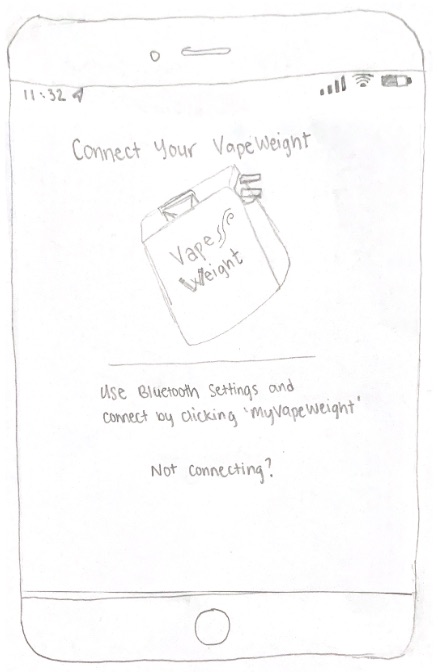 11:32
Connect Your VapeWeight
Vape
Weight
Use Bluetooth Settings and
connect by clicking 'MyVapeWeight'
Not Connecting?